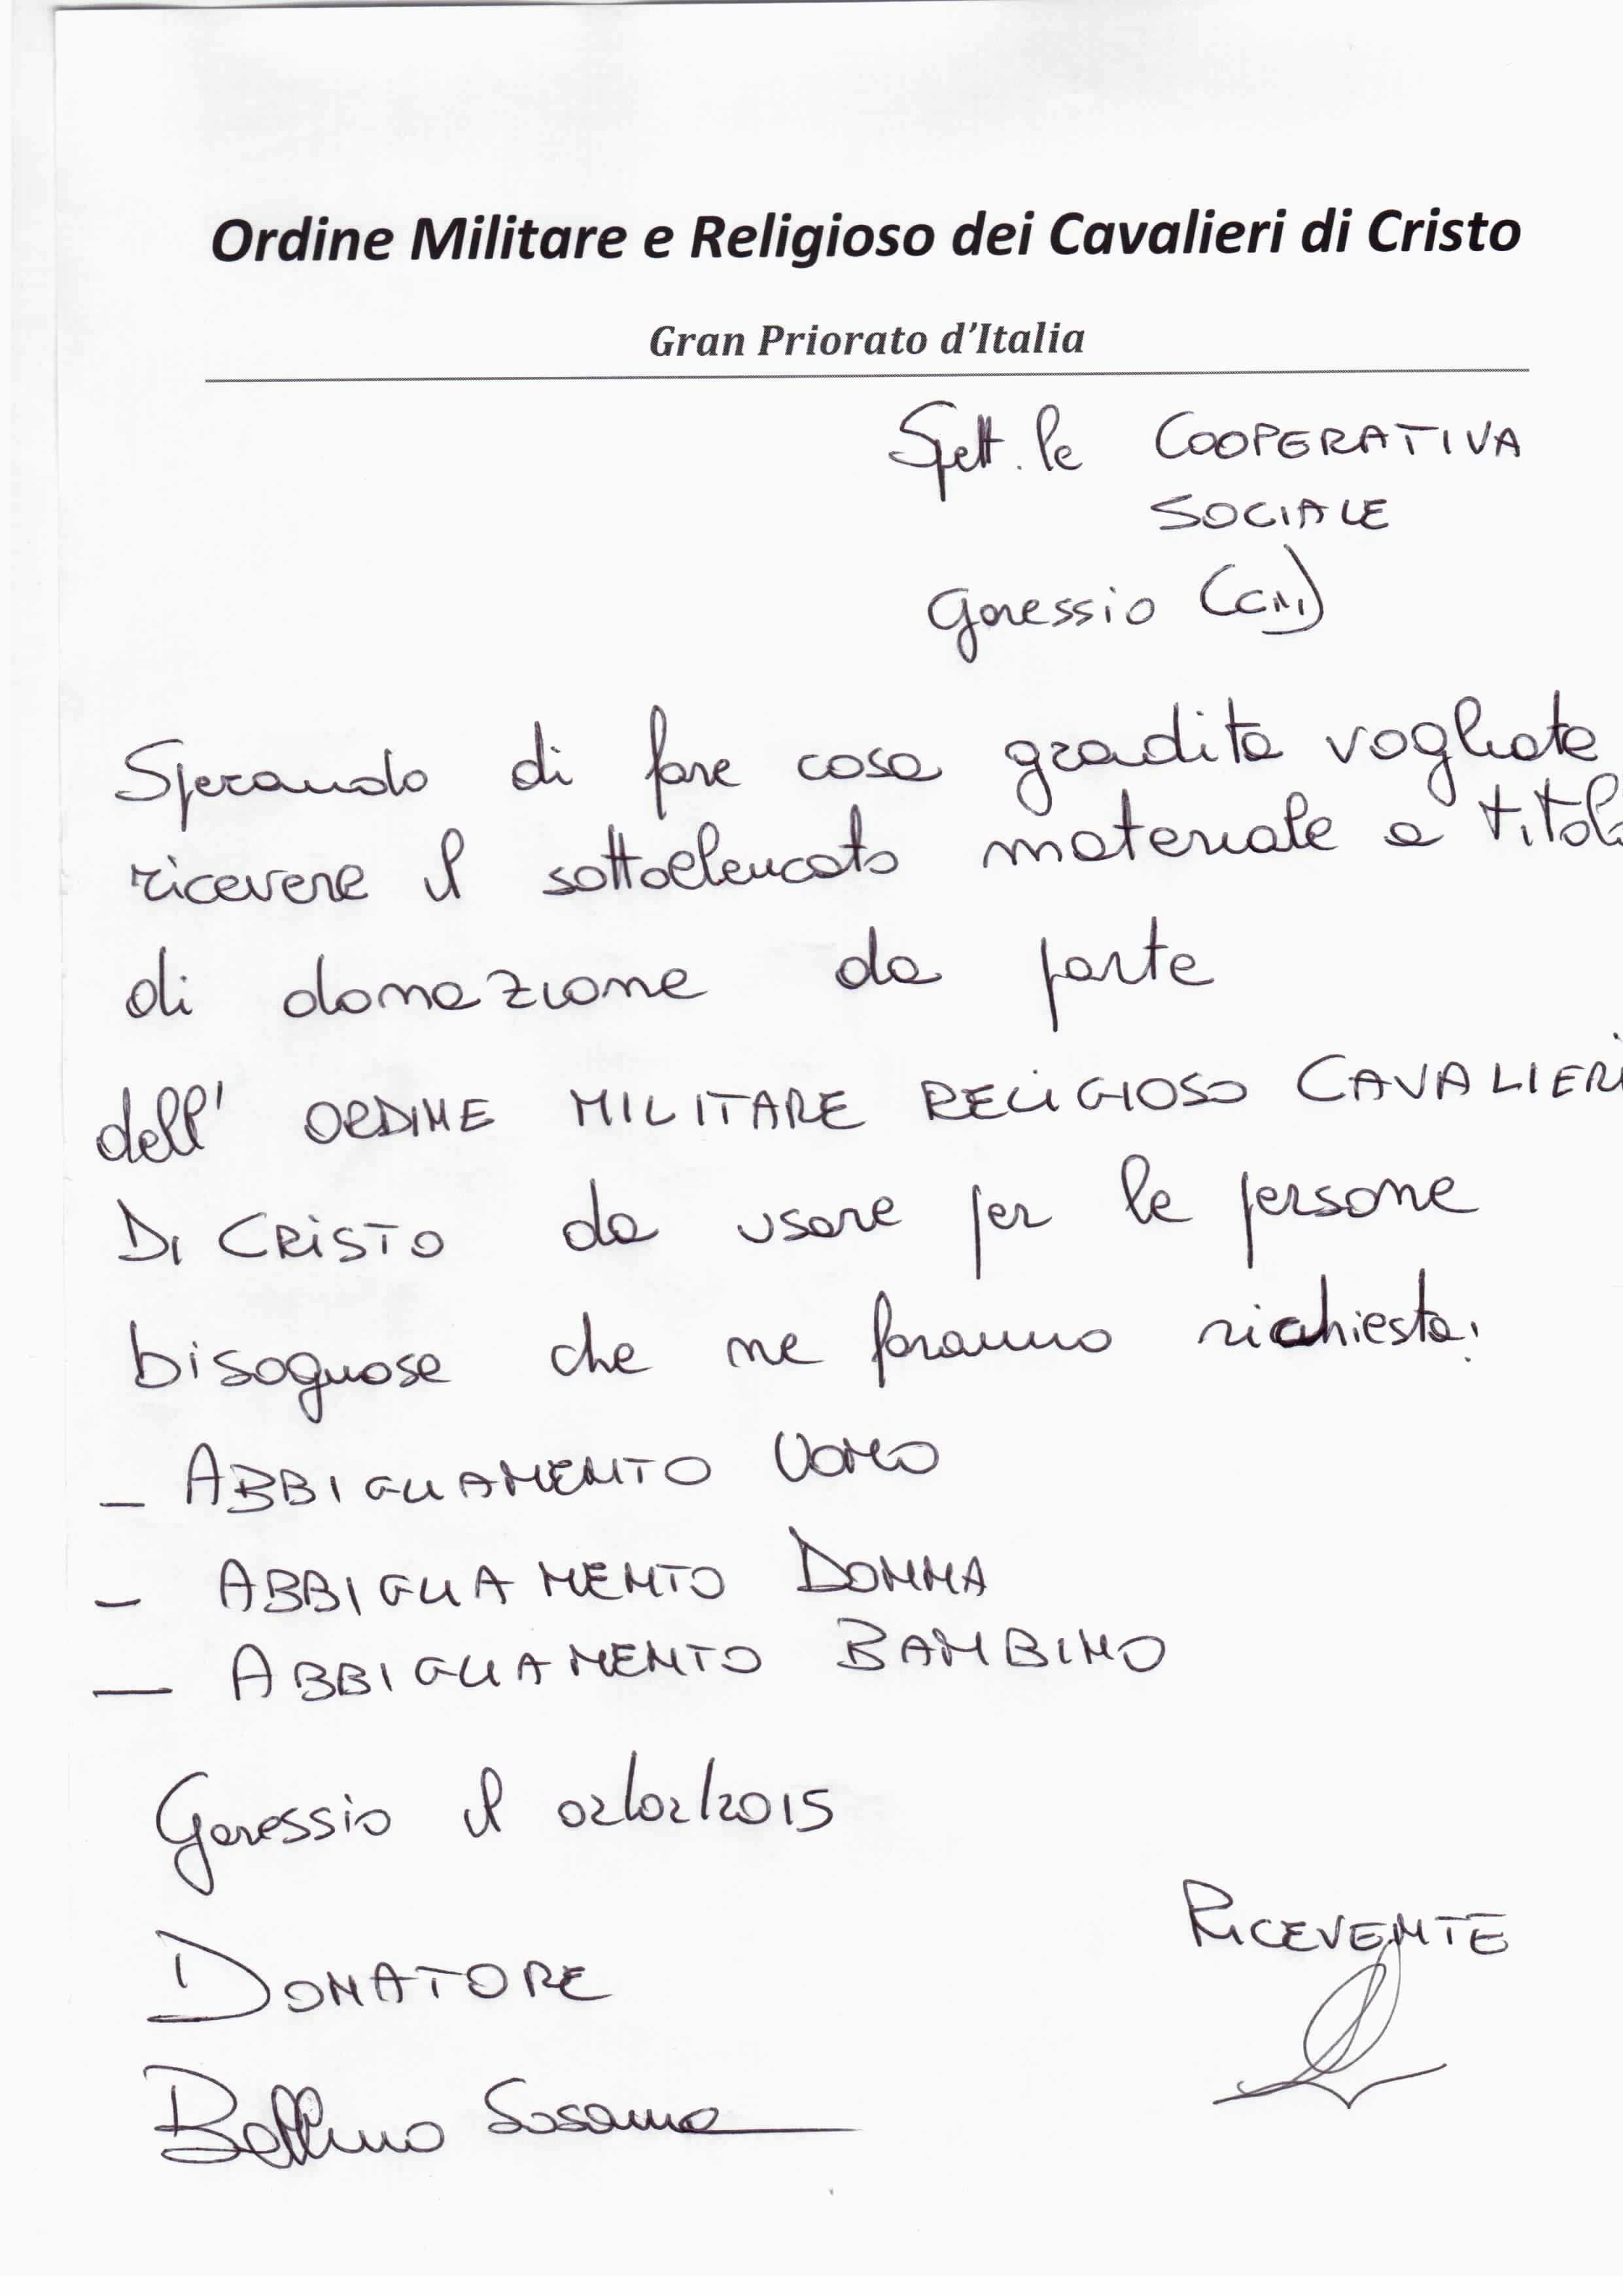 Ordine Militare e Religioso dei Cavalieri di Cristo
Gran Priorato d'Italia
Spett.le COOPERATIVA
SOCIALE
Garessio (CN)
Sperando di fare cosa gradita vogliate
ricevere il sottoelencato materiale a titol
di donazione da parte
dell' ORDINE MILITARE RELIGIOSO CAVALIERI
DI CRISTO da usare per le persone
bisognose che ne faranno richiesta:
- ABBIGLIAMENTO UOMO
- ABBIGLIAMENTO DONNA
- ABBIGLIAMENTO BAMBINO
Garessio il 02/02/2015
RICEVENTE
DONATORE
Susanna